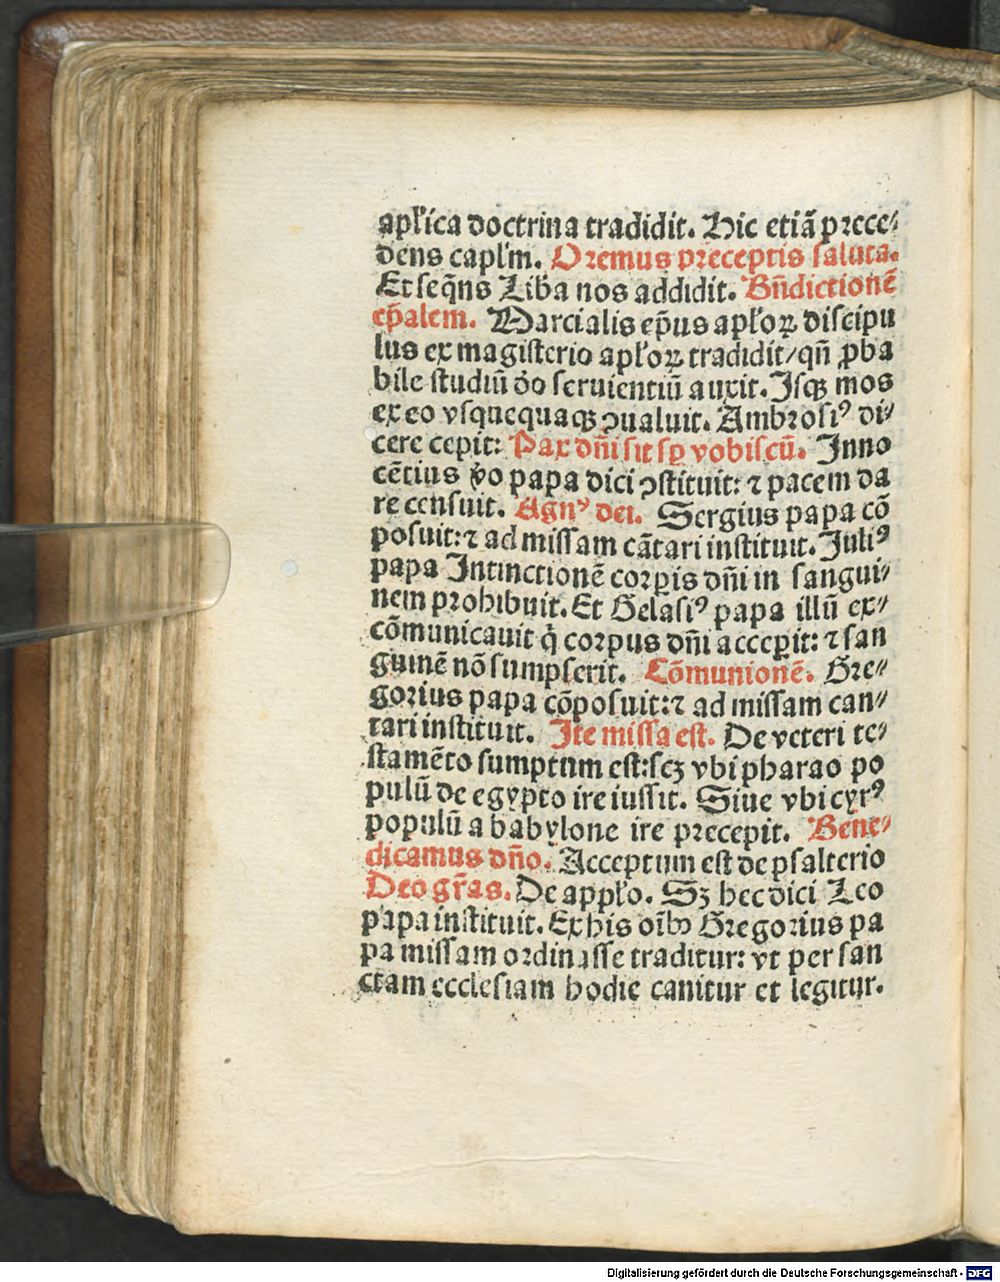 apl'ica doctrina tradidit. Hic etiã prece⸗
dens capl'm. Oremus preceptis saluta.
Et seq̃ns Liba nos addidit. Bñdictionẽ
ep̃alem. Marcialis ep̃us apl'oꝝ discipu
lus ex magisterio apl'oꝝ tradidit/qñ ꝓba
bile studiũ ðo seruientiũ auxit. Isqꝫ mos
ex eo vsquequaqꝫ ꝯualuit. Ambrosiꝰ di⸗
cere cepit: Pax dñi sit sꝑ vobiscũ. Inno
cẽtius ṽo papa dici ꝯstituit: ⁊ pacem da
re censuit. Agnꝰ dei. Sergius papa cõ
posuit: ⁊ ad missam cãtari instituit. Juliꝰ
papa Intinctionẽ corꝑis dñi in sangui⸗
nem prohibuit. Et Gelasiꝰ papa illũ ex⸗
cõmunicauit q̇ corpus dñi acceꝑit: ⁊ san
guinẽ nõ sumpserit. Cõmunionẽ. Gre⸗
gorius papa cõposuit: ⁊ ad missam can⸗
tari instituit. Ite missa est. De veteri te⸗
stamẽto sumptum est: scꝫ vbi pharao po
pulũ de egypto ire iussit. Siue vbi cyrꝰ
populũ a babylone ire precepit. Bene⸗
dicamus dño. Acceptum est de psalterio
Deo gr̃as. De appl'o. Sꝫ hec dici Leo
papa instituit. Ex his oĩbꝫ Gregorius pa
pa missam ordinasse traditur: vt per san
ctam ecclesiam hodie canitur et legitur.
Digitalisierung gefördert durch die Deutsche Forschungsgemeinschaft - DFG